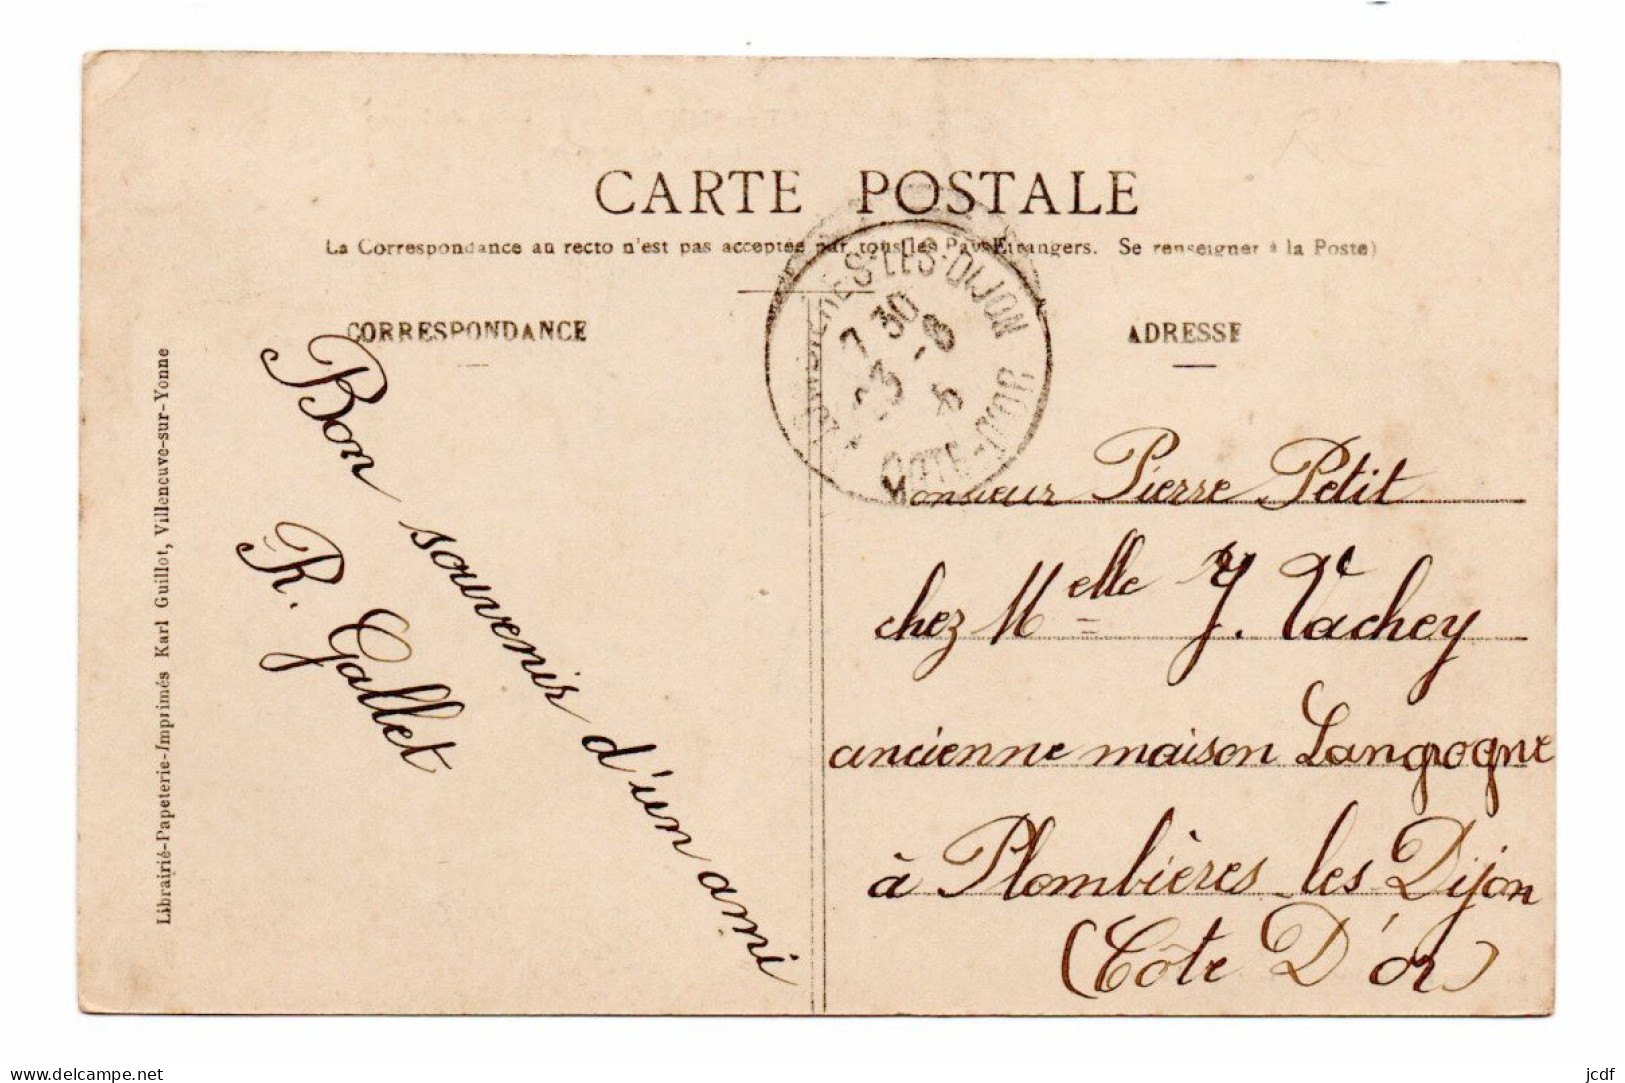 CARTE POSTALE
La Correspondance au recto n'est pas acceptée par tous les Pays Etrangers. Se renseigner à la Poste)
CORRESPONDANCE
ADRESSE
PLOMBIERES-LES-DIJON
7 30
23 - 8
COTE-D'OR
Bon souvenir d'un ami
R. Gallet
Monsieur Pierre Petit
chez Melle J. Vachey
ancienne maison Langrogne
à Plombières les Dijon
(Côte D'or)
Librairié-Papeterie-Imprimés Karl Guillot, Villeneuve-sur-Yonne
delcampe.net
jcdf